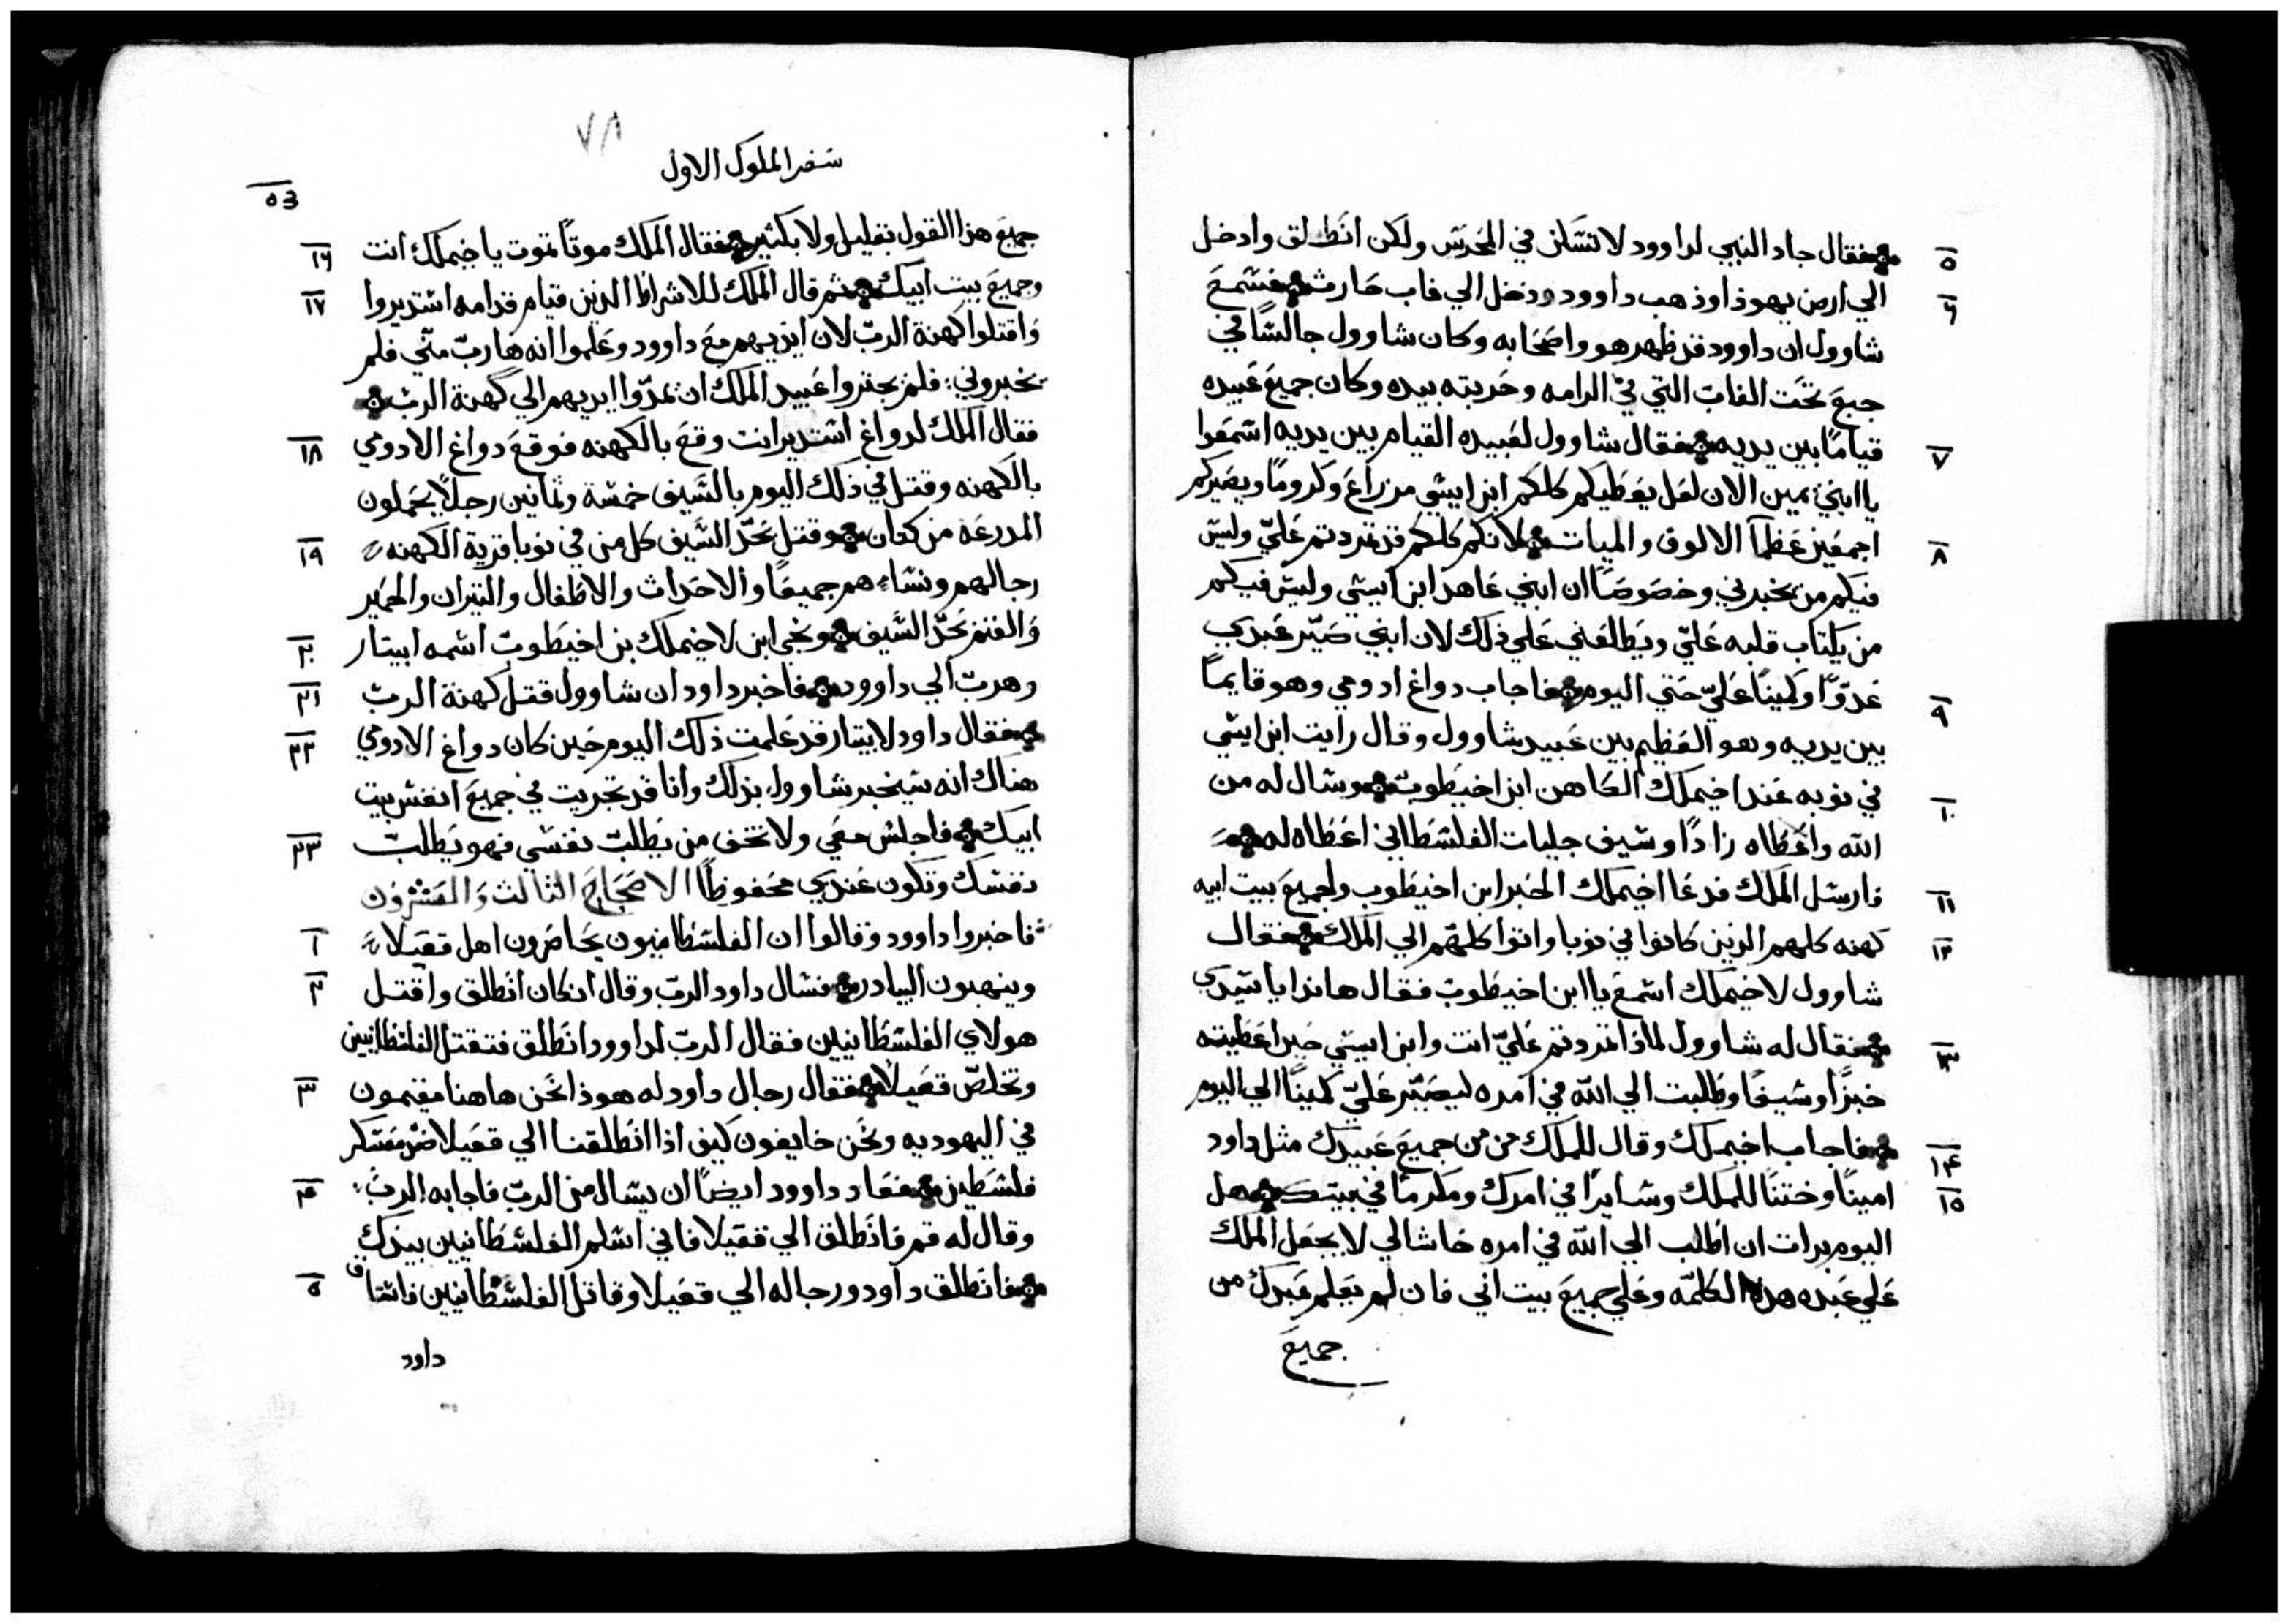 ٥ فقال جاد النبي لداوود لا تسكن في المحرس ولكن انطلق وادخل
٦ الي ارض يهوذا وذهب داوود ودخل الي غاب حارث فسمع
شاوول ان داوود قد ظهر هو واصحابه وكان شاوول جالسًا في
جبع تحت الغاب التي في الرامه وحربته بيده وكان جميع عبيده
٧ قيامًا بين يديه فقال شاوول لعبيده القيام بين يديه اسمعوا
يا ابني يمين الان لعل يعطيكم كلكم ابن ايسي مزراع وكرومًا ويصيركم
٨ اجمعين عظمآ الالوف والميات لانكم كلكم قد تمردتم عليّ وليس
فيكم من يخبرني وخصوصًا ان ابني عاهد ابن ايسي وليس فيكم
من يكتاب قلبه عليّ ويطالعني علي ذلك لان ابني صيّر عبدي
٩ عدوًّا وكمينًا عليّ حتي اليوم فاجاب دواغ ادومي وهو قايمًا
بين يديه وهو العظيم بين عبيد شاوول وقال رايت ابن ايسي
١٠ في نوبه عند اخيملك الكاهن ابن اخيطوب وسال له من
الله واعطاه زادًا وسيف جليات الفلسطاني اعطاه له
١١ فارسل الملك فدعا اخيملك الحبر ابن اخيطوب ولجميع بيت ابيه
١٢ كهنه كلهم الذين كانوا في نوبا واتوا كلهم الي الملك فقال
شاوول لاخيملك اسمع يا ابن اخيطوب فقال هانذا يا سيدي
١٣ فقال له شاوول لماذا تمردتم عليّ انت وابن ايسي حين اعطيته
خبزًا وسيفًا وطلبت الي الله في امره ليصير عليّ كمينًا الي اليوم
١٤ فاجاب اخيملك وقال للملك من من جميع عبيدك مثل داود
١٥ امينًا وختنًا للملك وسايرًا في امرك ومكرمًا في بيتك هل
اليوم بدات ان اطلب الي الله في امره حاشا لي لا يجعل الملك
علي عبده هذه الكلمه وعلي جميع بيت ابي فان لم يعلم عبدك من
جميع
٧٨
سفر الملوك الاول
جميع هذا القول بقليل ولا بكثير ١٦ فقال الملك موتًا تموت يا اخيملك انت
١٧ وجميع بيت ابيك ثم قال الملك للاشراط الذين قيام قدامه استديروا
واقتلوا كهنة الرب لان ايديهم مع داوود وعلموا انه هارب منّي فلم
يخبروني فلم يجتروا عبيد الملك ان يمدّوا ايديهم الي كهنة الرب
١٨ فقال الملك لدواغ استدير انت وقع بالكهنه فوقع دواغ الادومي
بالكهنه وقتل في ذلك اليوم بالسيف خمسة وثمانين رجلًا يحملون
١٩ المدرعه من كتان وقتل بحدّ السيف كل من في نوبا قرية الكهنه
رجالهم ونساءهم جميعًا والاحداث والاطفال والتيران والحمير
٢٠ والغنم بحدّ السيف ونجي ابن لاخيملك بن اخيطوب اسمه ابيتار
٢١ وهرب الي داوود فاخبر داود ان شاوول قتل كهنة الرب
٢٢ فقال داود لابيتار قد علمت ذلك اليوم حين كان دواغ الادومي
هناك انه سيخبر شاوول بذلك وانا قد تجريت في جميع انفس بيت
٢٣ ابيك فاجلس معي ولا تخف من يطلب نفسي فهو يطلب
نفسك وتكون عندي محفوظًا الاصحاح الثالث والعشرون
١ فاخبروا داوود وقالوا ان الفلسطانيون يحاصرون اهل قعيلا
٢ وينهبون البيادر فسال داود الرب وقال ان كان انطلق واقتل
هولاي الفلسطانيين فقال الرب لداوود انطلق فتقتل الفلسطانيين
٣ وتخلص قعيلا فقال رجال داود له هوذا نحن هاهنا مقيمون
في اليهوديه ونحن خايفون كيف اذا انطلقنا الي قعيلا معسكر
٤ فلسطين فعاد داوود ايضًا ان يسال من الرب فاجابه الرب
وقال له قم فانطلق الي قعيلا فاني اسلم الفلسطانيين بيدك
٥ فانطلق داود ورجاله الي قعيلا وقاتل الفلسطانيين فاستاق
داود